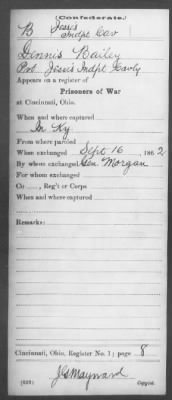 (Confederate.)
B Jessie's Indpt Cav
Dennis Bailey
Pvt Jessie's Indpt Cavly
Appears on a register of
Prisoners of War
at Cincinnati, Ohio.
When and where captured
In Ky
From where paroled
When exchanged Sept 16, 1862
By whom exchanged Gen. Morgan
For whom exchanged
Co., Reg't or Corps
When and where captured
Remarks:
Cincinnati, Ohio, Register No. 1; page 8
J C Maynard
Copyist.